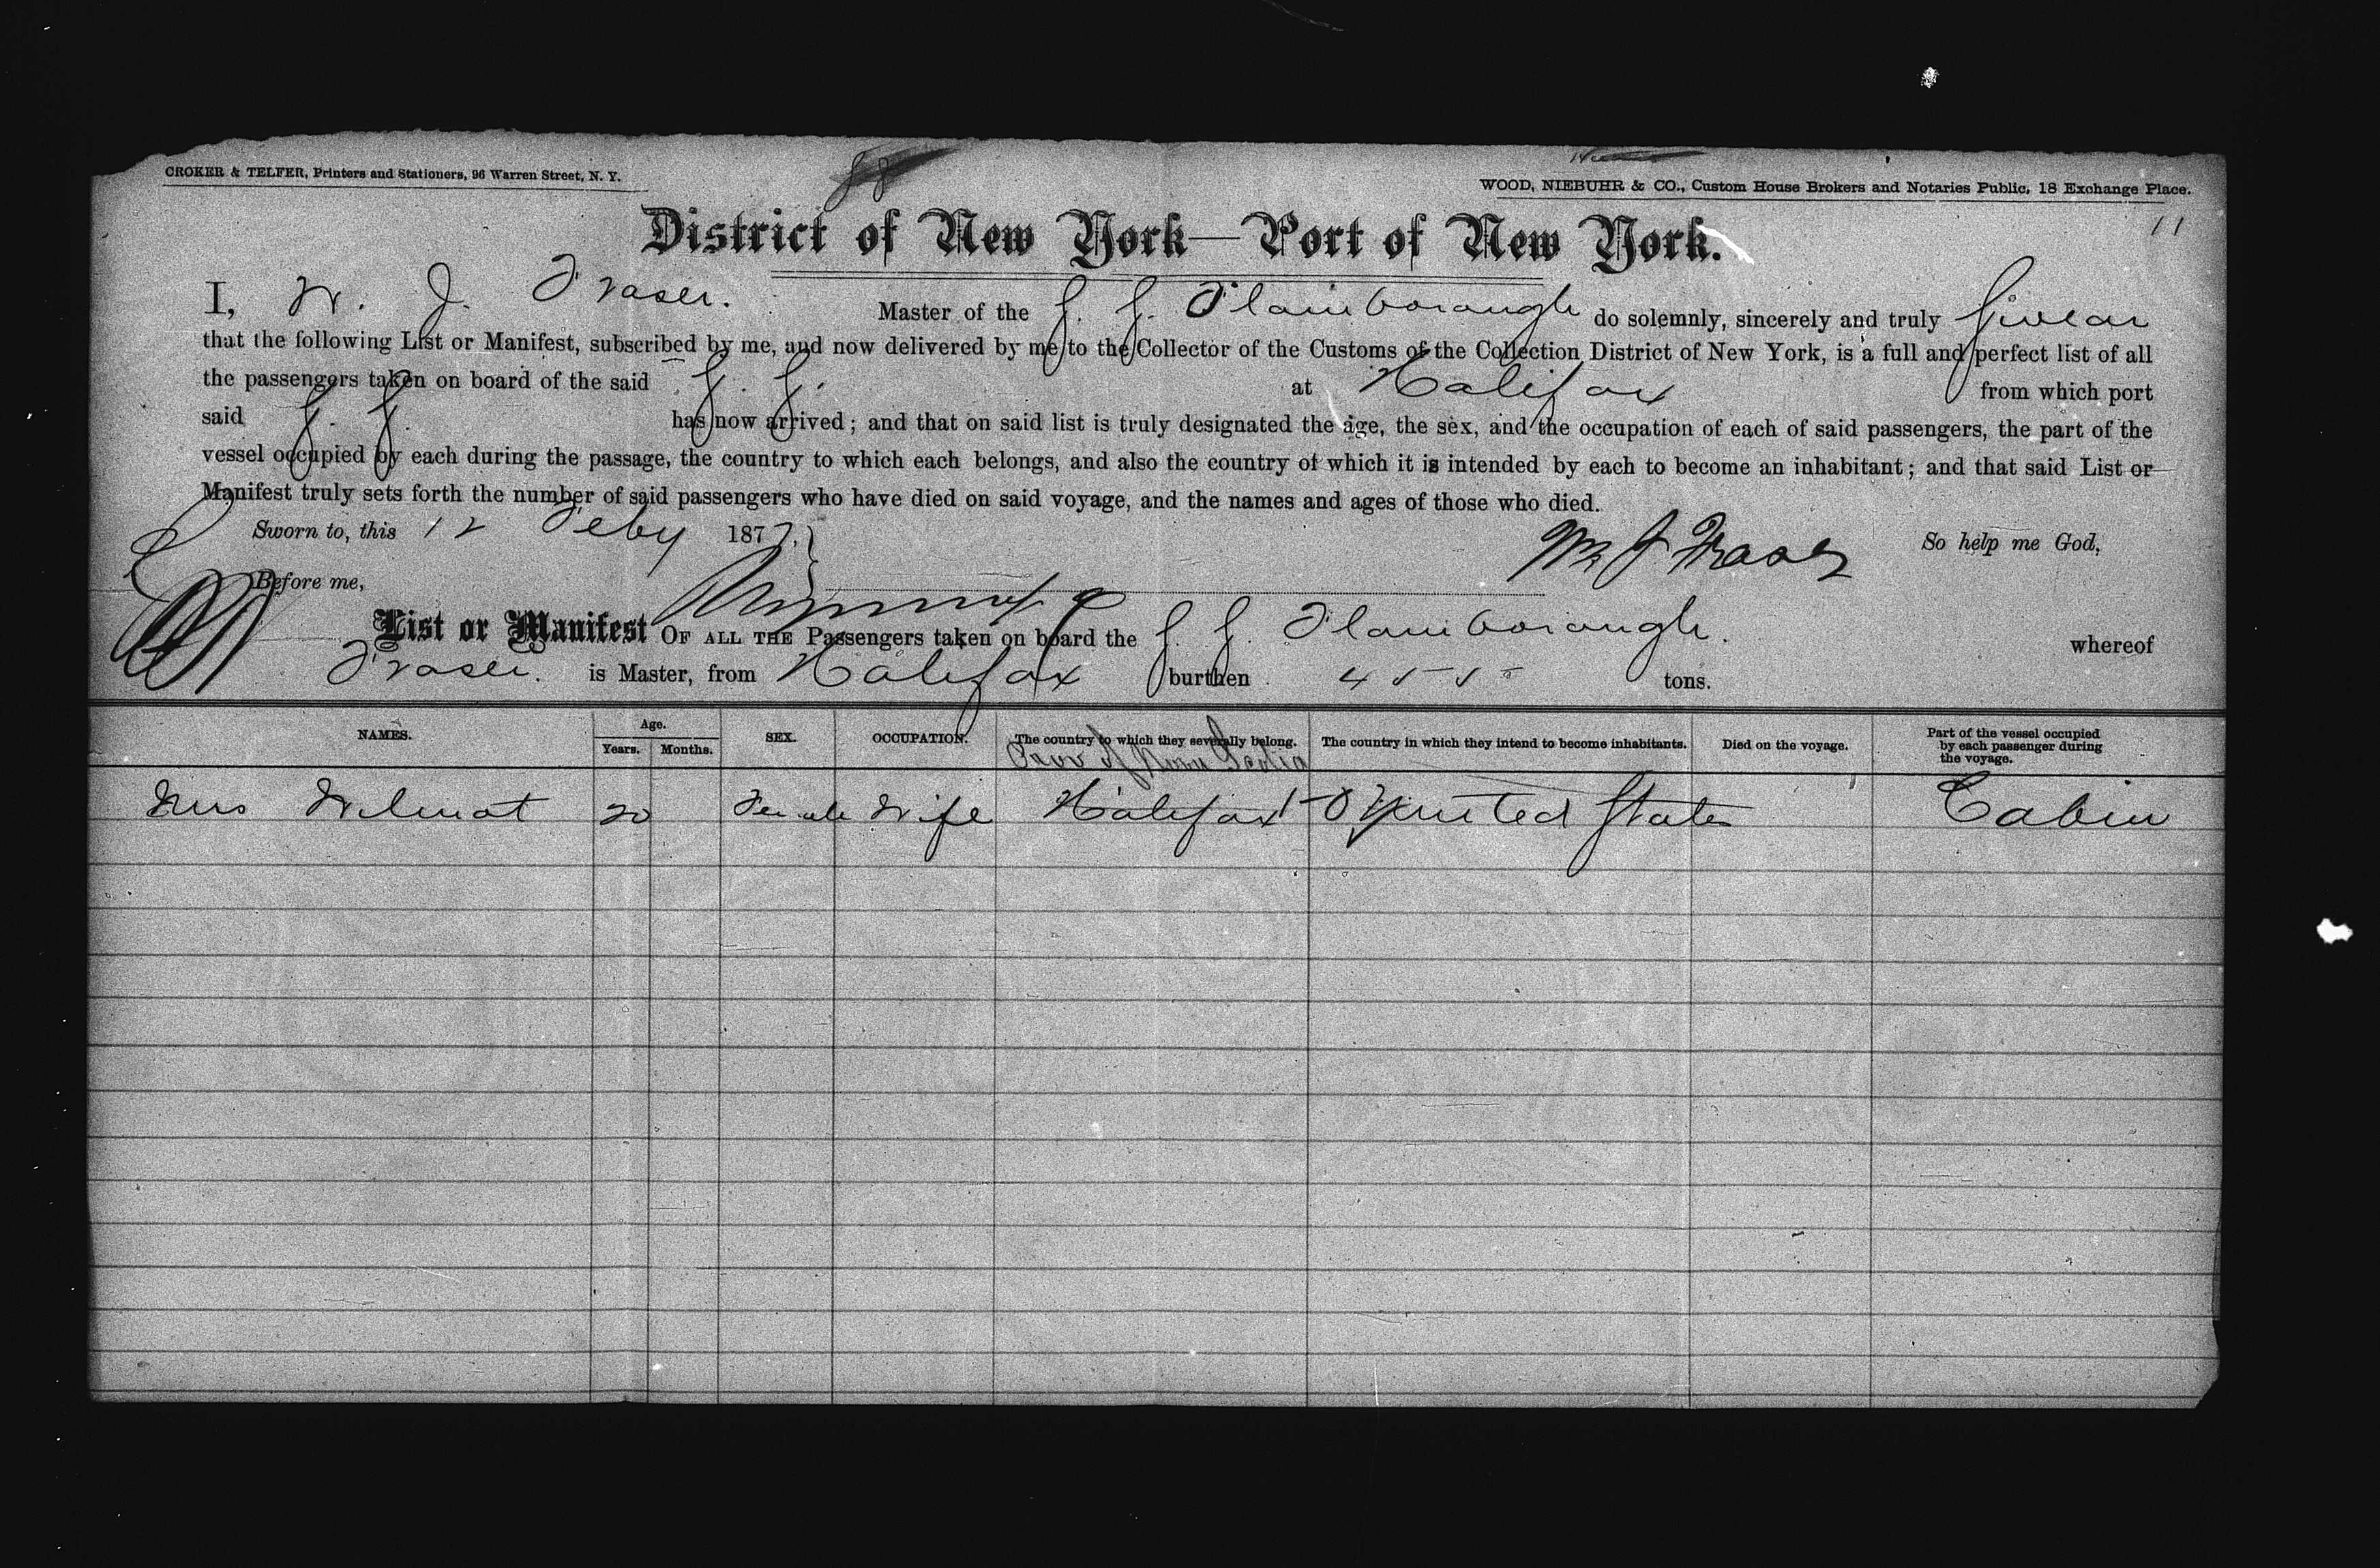 CROKER & TELFER, Printers and Stationers, 96 Warren Street, N. Y.
WOOD, NIEBUHR & CO., Custom House Brokers and Notaries Public, 18 Exchange Place.
11
District of New York—Port of New York.
I, W. J. Fraser. Master of the S. S. Flamborough do solemnly, sincerely and truly Swear
that the following List or Manifest, subscribed by me, and now delivered by me to the Collector of the Customs of the Collection District of New York, is a full and perfect list of all
the passengers taken on board of the said S. S. at Halifax from which port
said S. S. has now arrived; and that on said list is truly designated the age, the sex, and the occupation of each of said passengers, the part of the
vessel occupied by each during the passage, the country to which each belongs, and also the country of which it is intended by each to become an inhabitant; and that said List or
Manifest truly sets forth the number of said passengers who have died on said voyage, and the names and ages of those who died.
Sworn to, this 12 Feby 1877. Wm J Fraser So help me God,
Before me,
List or Manifest OF ALL THE Passengers taken on board the S. S. Flamborough. whereof
Fraser. is Master, from Halifax burthen 455 tons.
NAMES. Age. Years. Months. SEX. OCCUPATION. The country to which they severally belong. The country in which they intend to become inhabitants. Died on the voyage. Part of the vessel occupied by each passenger during the voyage.
Prov of Nova Scotia
Mrs Wilmot 20 Female Wife Halifax United States Cabin